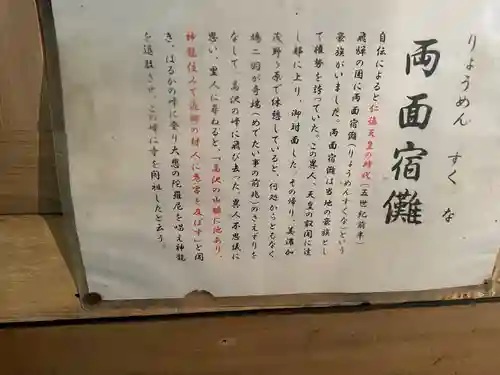 りょうめん すくな
両面宿儺
自伝によると仁徳天皇の時代（五世紀前半）
飛騨の国に両面宿儺（りょうめんすくな）という
豪族がいました。両面宿儺は当地の豪族とし
て権勢を誇っていた。この異人、天皇の叡聞に達
し都に上り、御対面した。その帰り、美濃加
茂野ヶ原で休憩していると、何処からともなく
鳩二羽が奇瑞（めでたい事の前兆）のさえずりを
なして、高沢の峰に飛び去った。異人不思議に
思い、里人に尋ねると、「高沢の山脈に池あり、
神龍住んで近郷の村人に危害を及ぼす」と聞
き、はるかの峰に登り大悲の陀羅尼を唱え神龍
を退散させ、この峰に寺を開祖したと云う。